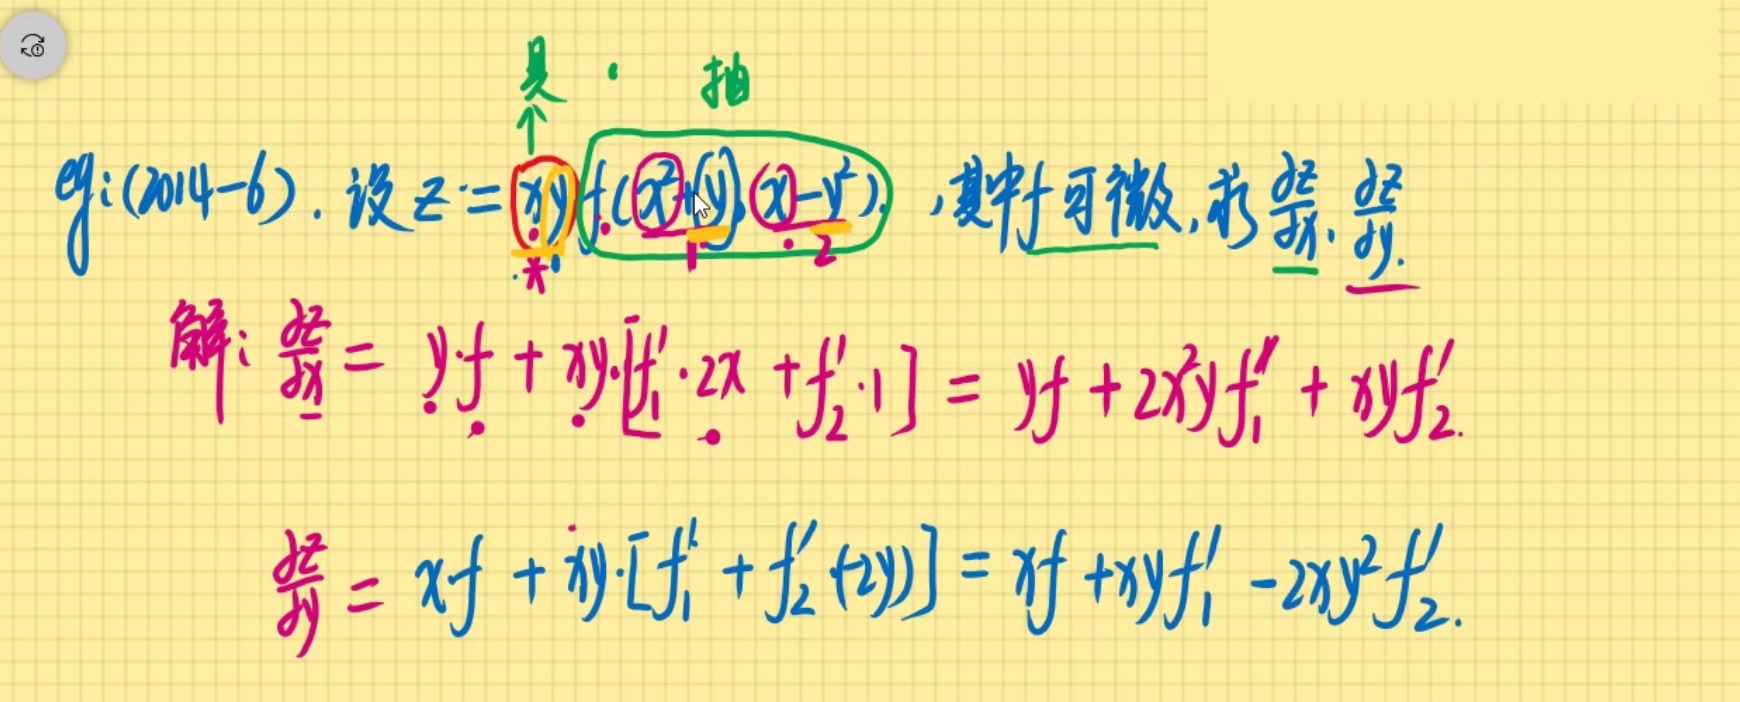 具 · 抽
eg:(2014-6). 设 z = xy f(x²+y, x-y²), 其中f可微, 求 ∂z/∂x, ∂z/∂y.
* 1 2
解: ∂z/∂x = y·f + xy·[f₁′·2x + f₂′·1] = yf + 2x²yf₁′ + xyf₂′.
∂z/∂y = x·f + xy·[f₁′ + f₂′·(-2y)] = xf + xyf₁′ - 2xy²f₂′.